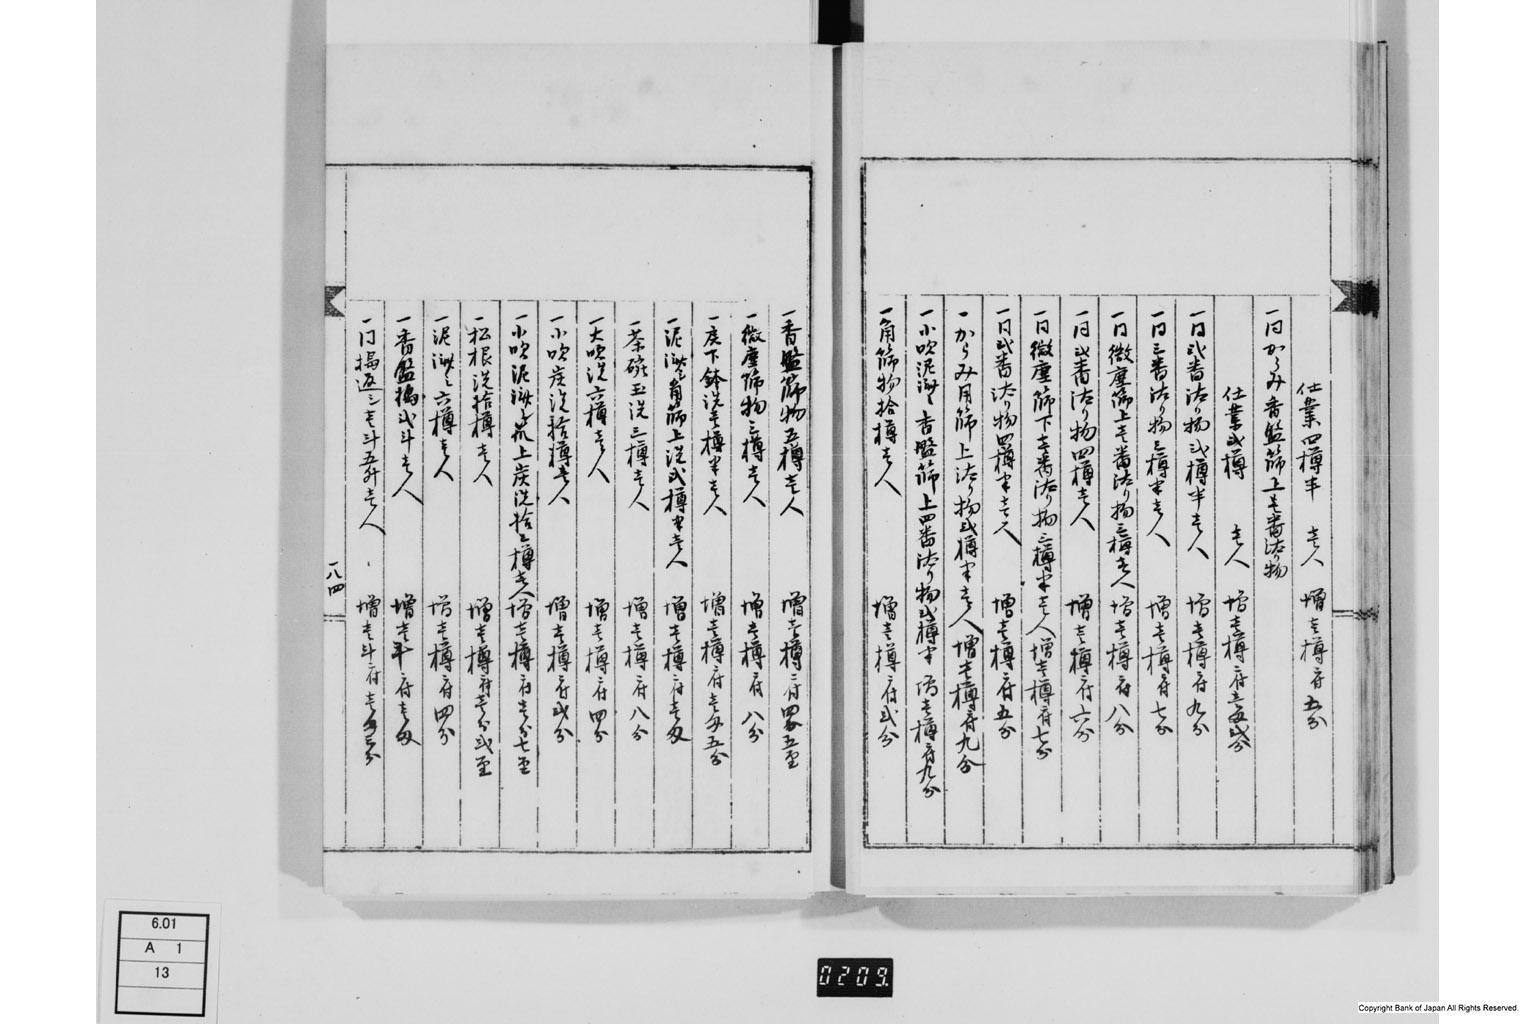 仕業四樽半 壱人 増壱樽ニ付五分
一同からみ香盤篩上壱番法り物
仕業弐樽 壱人 増壱樽ニ付壱匁弐分
一同弐番法り物弐樽半壱人 増壱樽ニ付九分
一同三番法り物三樽半壱人 増壱樽ニ付七分
一同微塵篩上壱番法り物三樽壱人 増壱樽ニ付八分
一同弐番法り物四樽壱人 増壱樽ニ付六分
一同微塵篩下壱番法り物三樽半壱人 増壱樽ニ付七分
一同弐番法り物四樽半壱人 増壱樽ニ付五分
一からみ用篩上法り物弐樽半壱人 増壱樽ニ付九分
一小吹泥淋シ香盤篩上四番法り物弐樽半 増壱樽ニ付九分
一角篩物拾樽壱人 増壱樽ニ付弐分
一香盤篩物五樽壱人 増壱樽ニ付四分五厘
一微塵篩物三樽壱人 増壱樽ニ付八分
一床下鉢洗壱樽半壱人 増壱樽ニ付壱匁五分
一泥淋シ角篩上洗弐樽半壱人 増壱樽ニ付壱匁
一茶碗玉洗三樽壱人 増壱樽ニ付八分
一大吹洗六樽壱人 増壱樽ニ付四分
一小吹炭洗拾樽壱人 増壱樽ニ付弐分
一小吹泥淋シ荒上炭洗拾三樽壱人 増壱樽ニ付壱分七厘
一松根洗拾樽壱人 増壱樽ニ付壱分弐厘
一泥淋シ六樽壱人 増壱樽ニ付四分
一香盤搗弐斗壱人 増壱斗ニ付壱匁
一同搗返シ壱斗五升壱人 増壱斗ニ付壱匁三分
一八四
6.01
A 1
13
0209.
Copyright Bank of Japan All Rights Reserved.